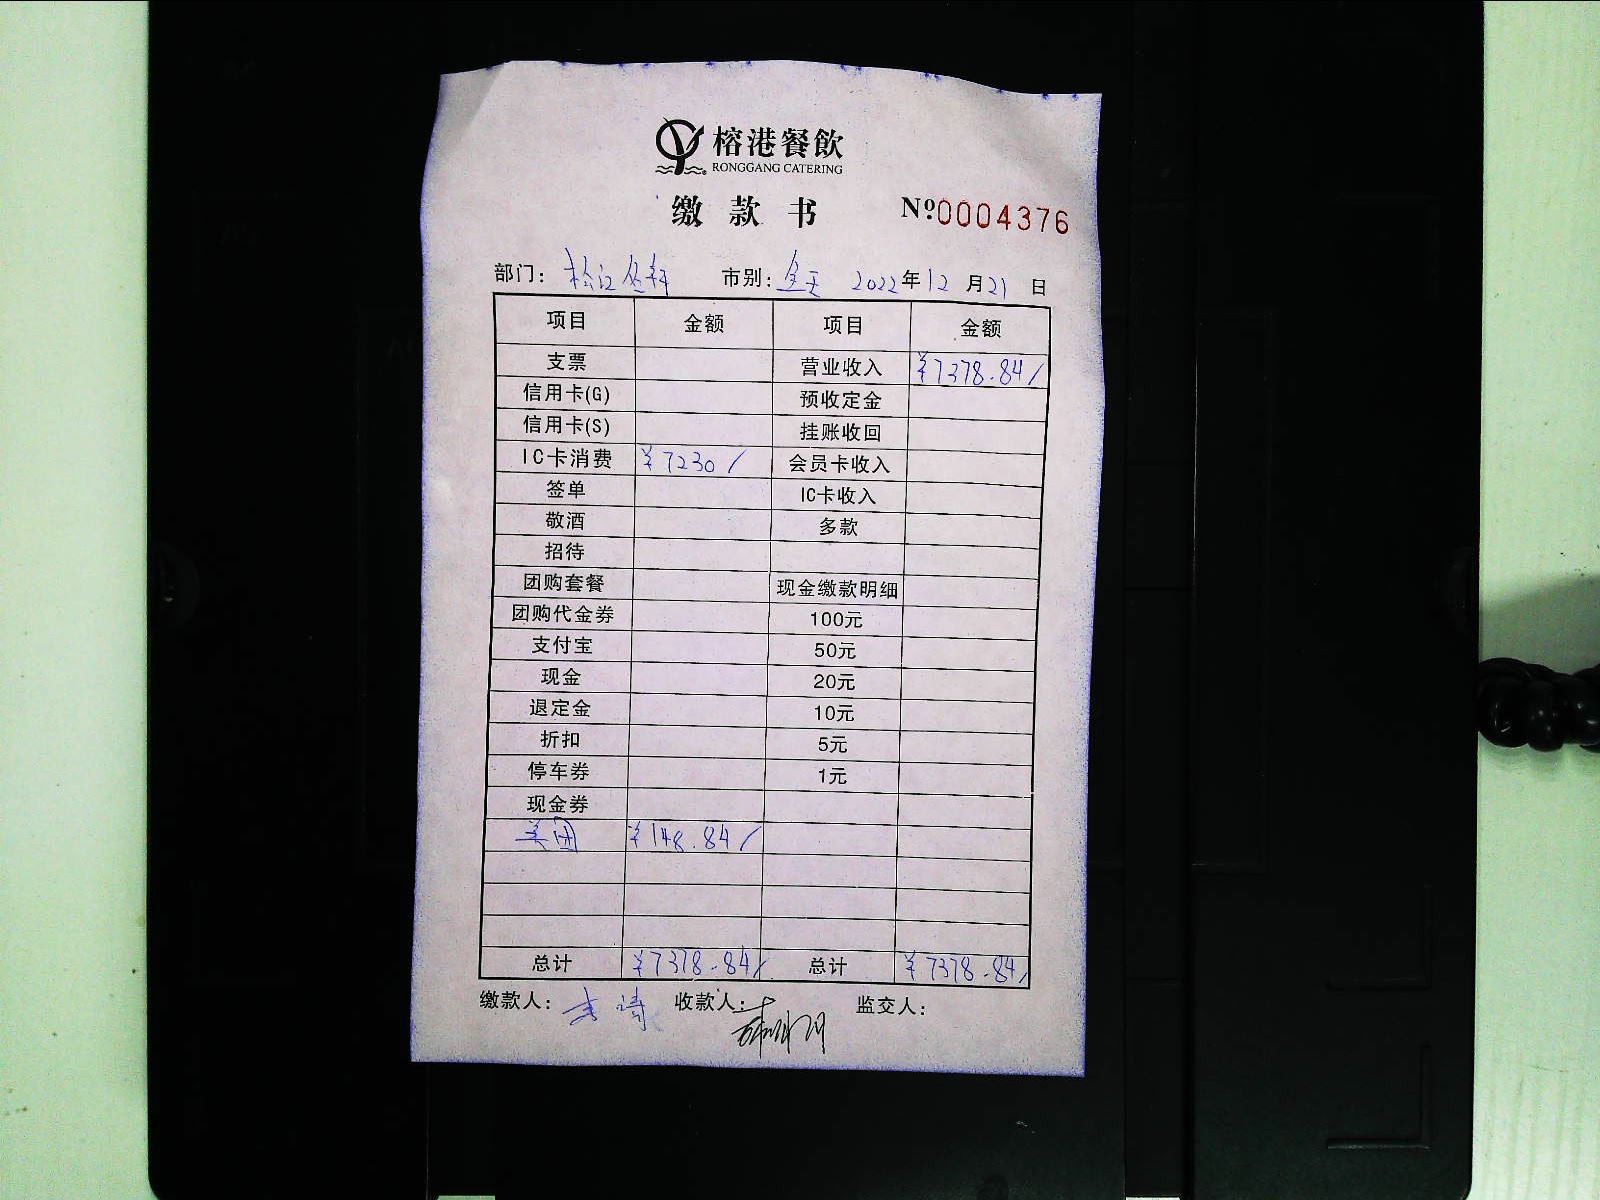 榕港餐飲
RONGGANG CATERING
缴款书 Nº0004376
部门: 松江 市别: 全天 2022年12月21日
项目 金额 项目 金额
支票 营业收入 ¥7378.84/
信用卡(G) 预收定金
信用卡(S) 挂账收回
IC卡消费 ¥7230/ 会员卡收入
签单 IC卡收入
敬酒 多款
招待
团购套餐 现金缴款明细
团购代金券 100元
支付宝 50元
现金 20元
退定金 10元
折扣 5元
停车券 1元
现金券
美团 ¥148.84/
总计 ¥7378.84/ 总计 ¥7378.84/
缴款人: 收款人: 监交人: